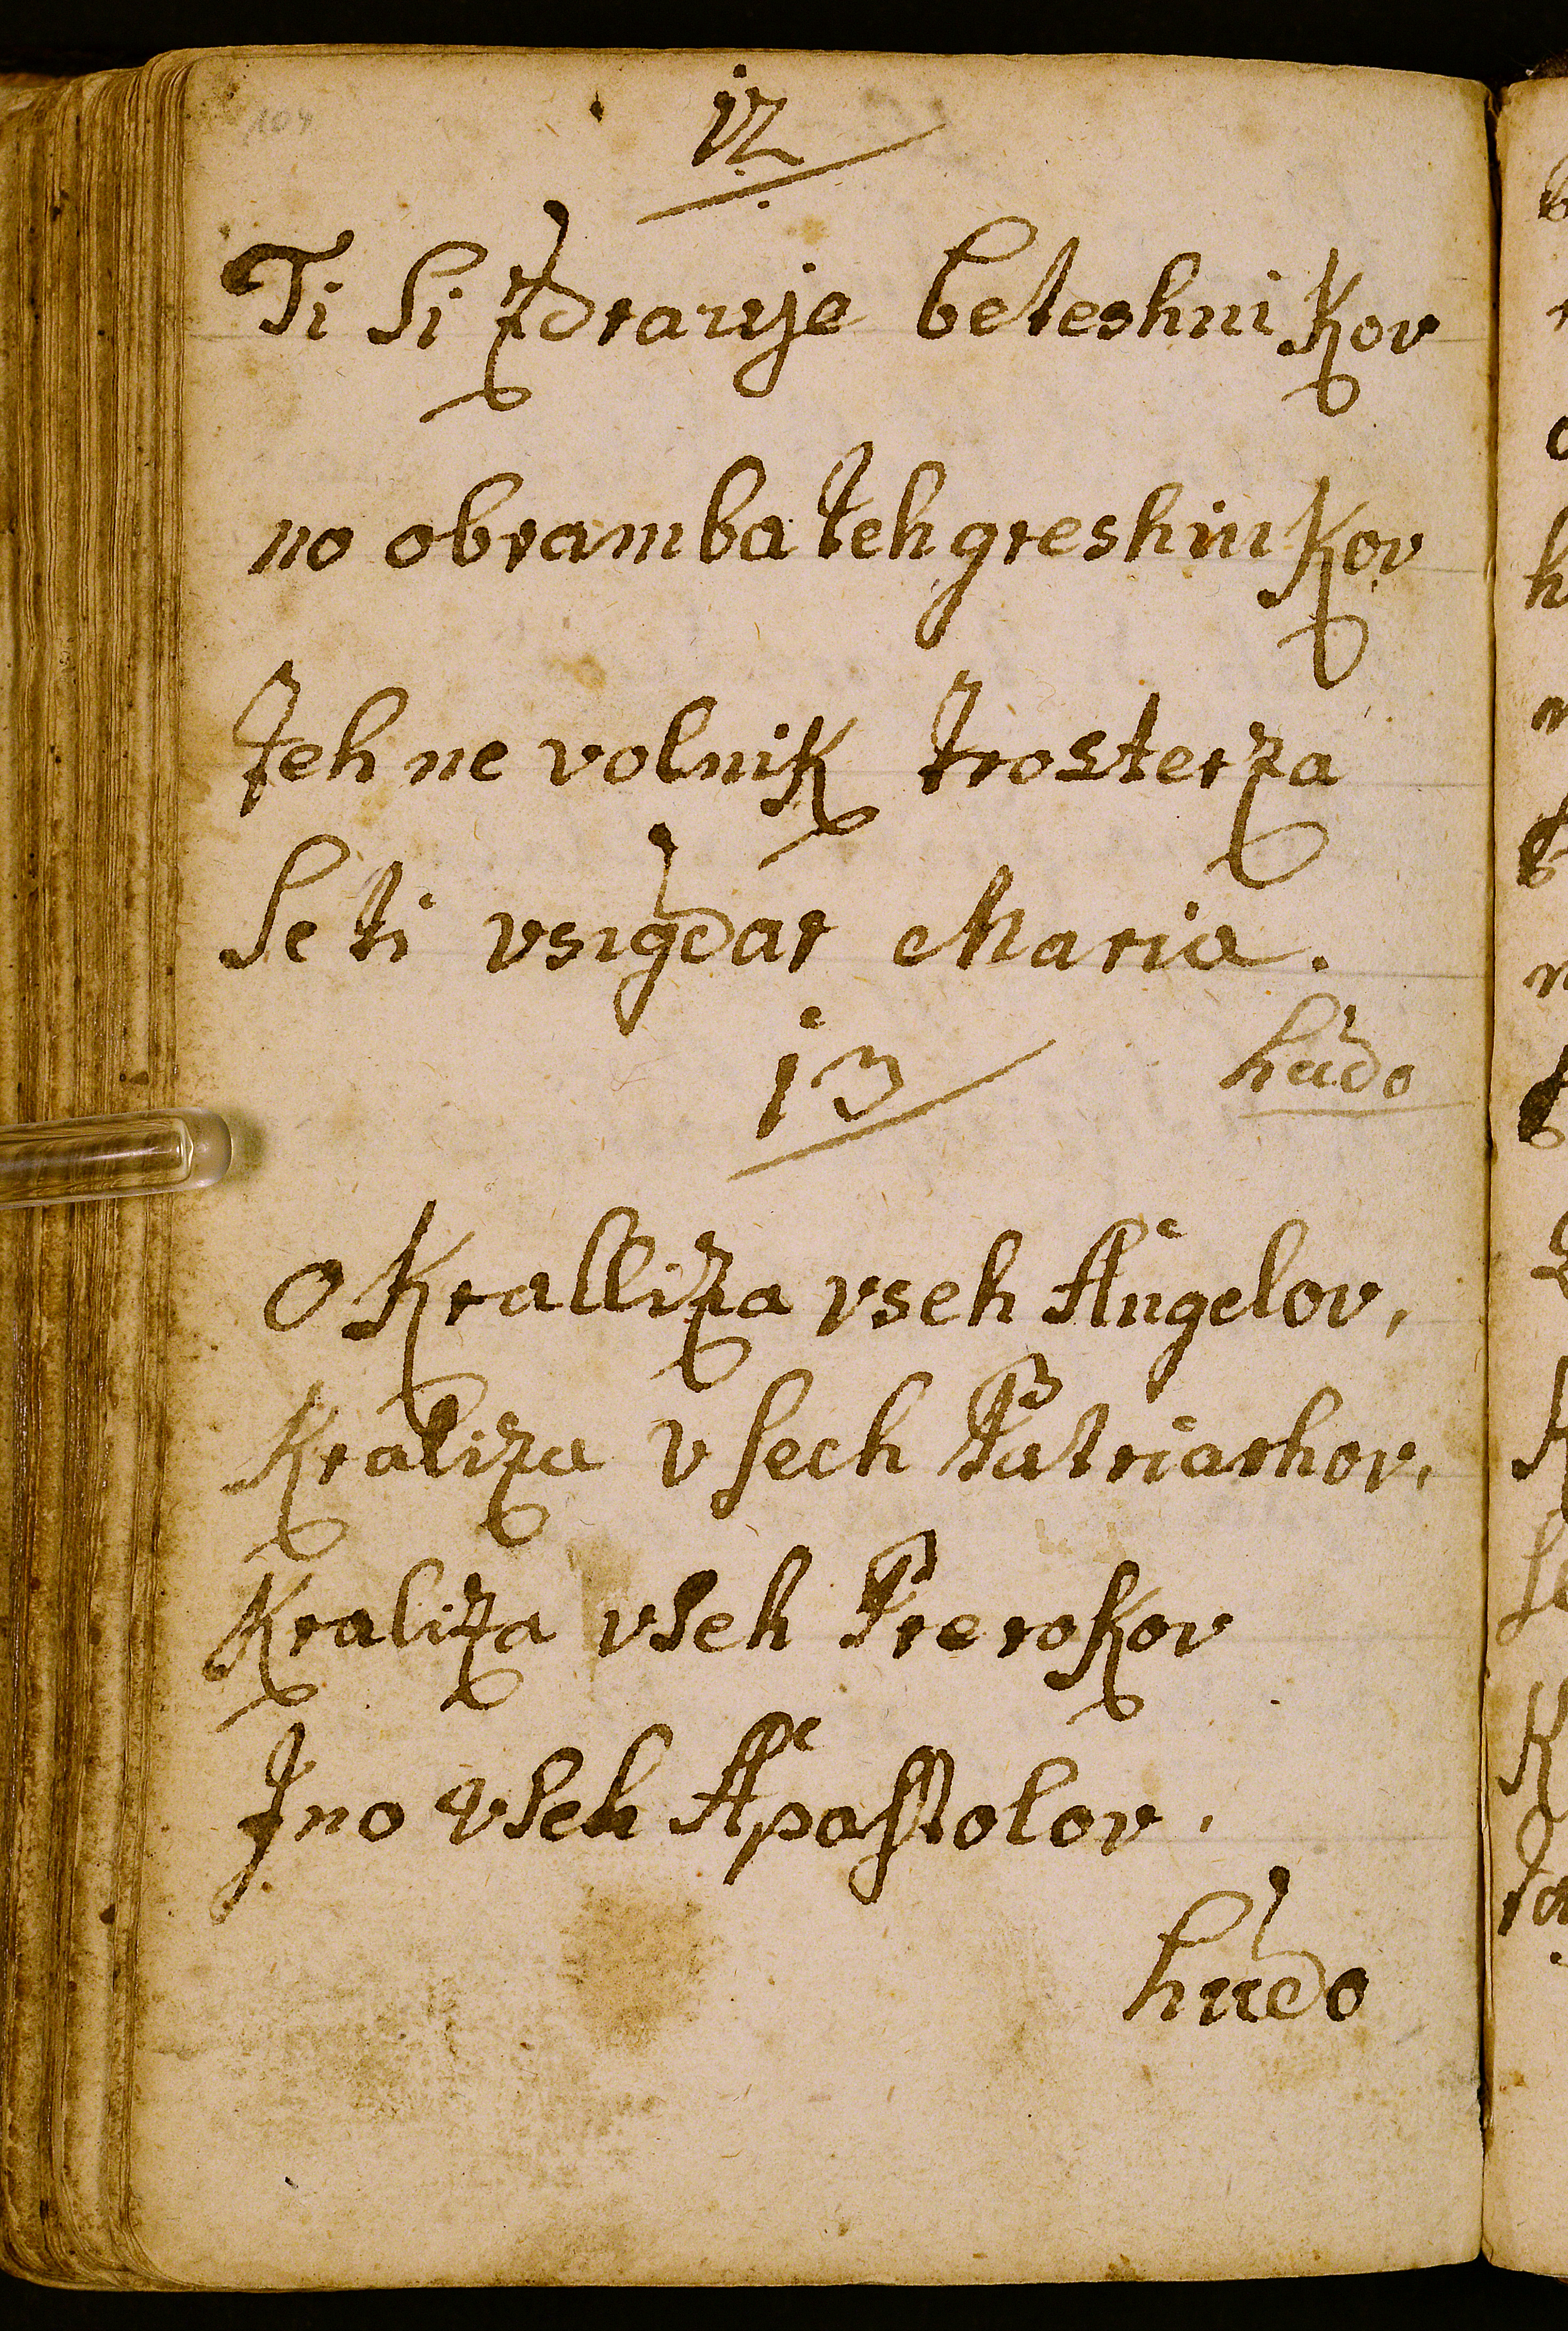 104
12
Ti Si Zdravje beteshnikov
no obramba teh greshnikov
teh ne volnik trosterza
Se ti vsigdar Maria.
13
hudo
O Kralliza vseh Angelov,
Kraliza vsech Patriarhov,
Kraliza vseh Prerokov
Ino vseh Apostolov.
hudo